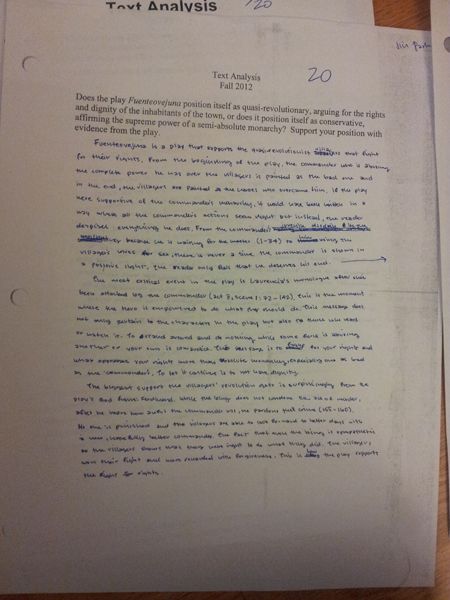 Text Analysis
/20
Text Analysis
Fall 2012
20
Does the play Fuenteovejuna position itself as quasi-revolutionary, arguing for the rights
and dignity of the inhabitants of the town, or does it position itself as conservative,
affirming the supreme power of a semi-absolute monarchy? Support your position with
evidence from the play.
Fuenteovejuna is a play that supports the quasi-revolutionist that fight
for their rights. From the beginning of the play, the commander who is abusing
the complete power he has over the villagers is painted as the bad one and
in the end, the villagers are painted as the ones who overcame him. If the play
were supportive of the commander's monarchy, it would have been written in a
way where all the commander's actions seem right but instead, the reader
despises everything he does. From the commander
because he is waiting for the master (1-34) to using the
villager's wives for sex, there is never a time the commander is shown in
a positive light. The reader only feels that he deserves his end.
The most critical event in the play is Laurencia's monologue after she's
been attacked by the commander (Act 3, scene 1: ). This is the moment
where the hero is empowered to do what they should do. This message does
not only pertain to the characters in the play but also to those who read
or watch it. To stand around and do nothing while some one is abusing
another or your own is cowardice. This message is to for your rights and
what oppresses your rights more than absolute monarchy, especially one as bad
as the commander's. To let it continue is to not have dignity.
The biggest support the villagers' revolution gets is surprisingly from the
and Ferdinand. While the king does not condone the act of murder,
after he hears how awful the commander was, he pardons the crime (165-160).
No one is punished and the villagers are able to look forward to better days with
a new, hopefully better commander. The fact that even the king is sympathetic
to the villagers shows that they were right to do what they did. The villagers
won their fight and were rewarded with forgiveness. This is how the play supports
the fight for rights.